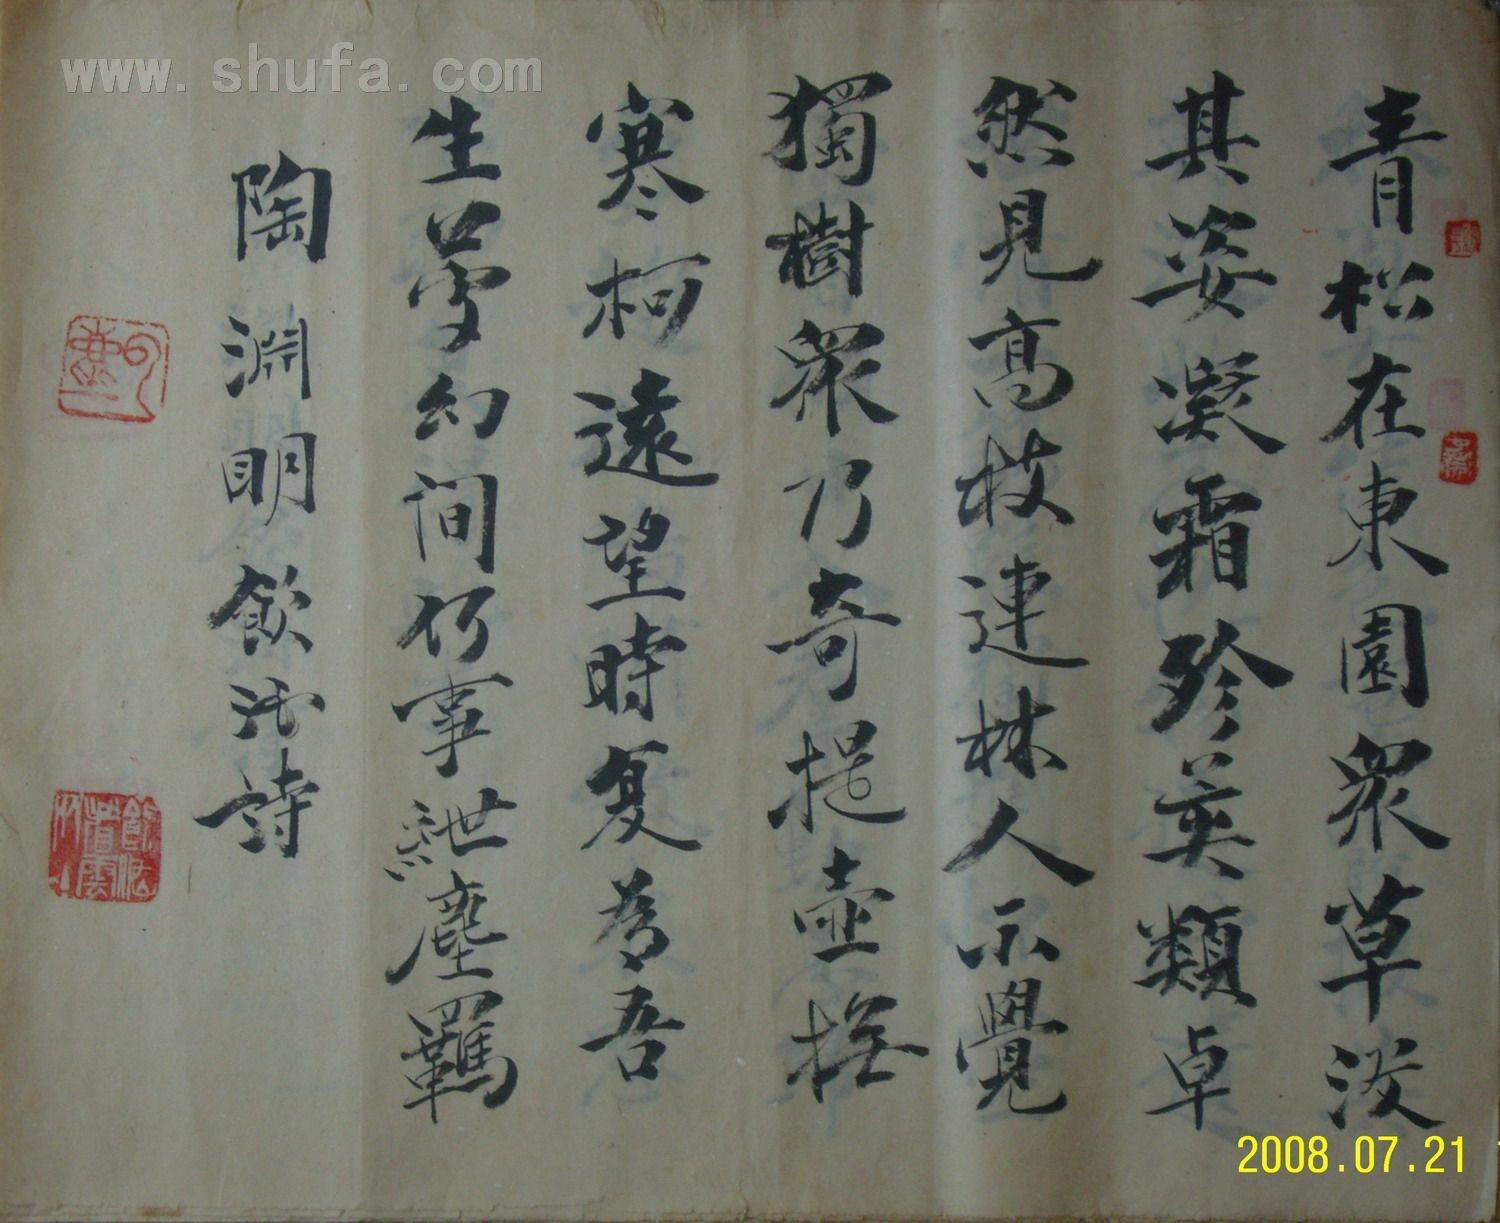 www.shufa.com
青松在東園眾草没
其姿凝霜殄異類卓
然見高枝連林人不覺
獨樹眾乃奇提壺撫
寒柯遠望時复為吾
生夢幻间何事紲塵羈
陶淵明飲酒詩
2008.07.21